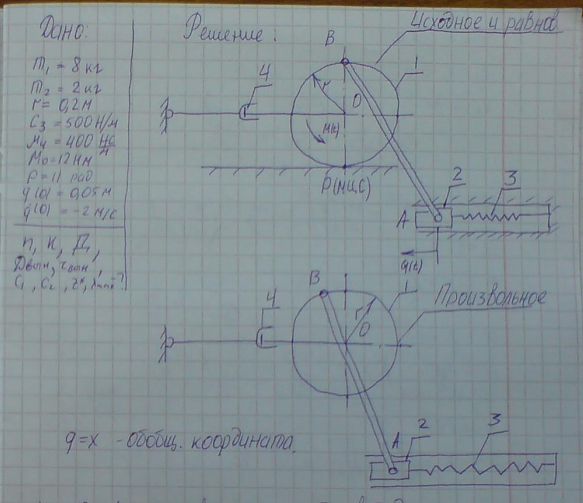 Дано:
m₁ = 8 кг
m₂ = 2 кг
r = 0,2 м
C₃ = 500 Н/м
μ₄ = 400 Нс/м
M₀ = 12 Нм
P = 11 рад
q(0) = 0,05 м
q̇(0) = -2 м/с
n, K, Д,
C₁, C₂,
Решение:
Исходное и равнов
B
4
1
r
O
M(t)
P(МЦС)
2
3
A
q(t)
B
4
1
r
O
Произвольное
A
2
3
q=x - обобщ. координата.